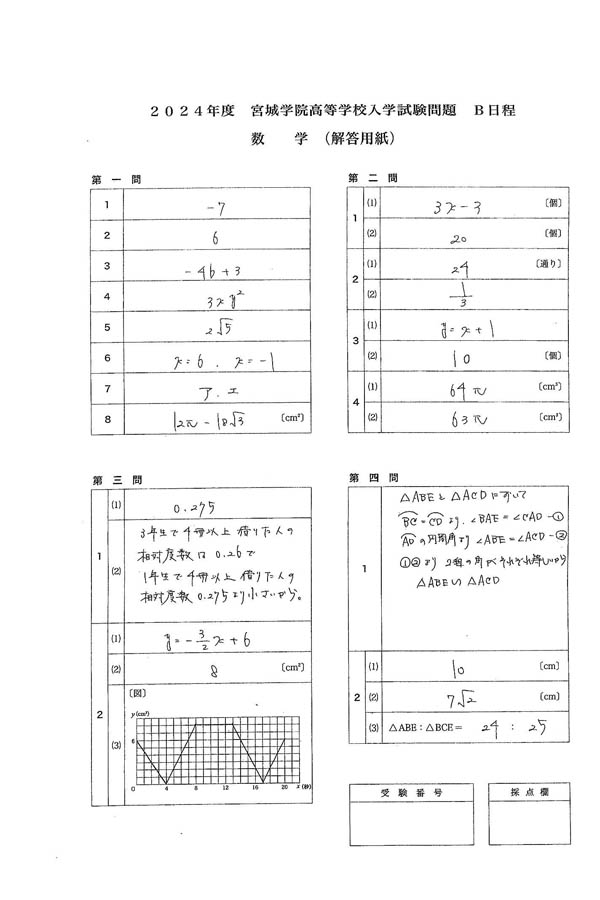 2024年度 宮城学院高等学校入学試験問題 B日程
数 学 (解答用紙)
第 一 問
1 -7
2 6
3 -4b+3
4 3xy²
5 2√5
6 x=6 . x=-1
7 ア.エ
8 12π-18√3 〔cm²〕
第 二 問
1 (1) 3x-3 〔個〕
(2) 20 〔個〕
2 (1) 24 〔通り〕
(2) 1/3
3 (1) y=x+1
(2) 10 〔個〕
4 (1) 64π 〔cm³〕
(2) 63π 〔cm²〕
第 三 問
1 (1) 0.275
(2) 3年生で4冊以上借りた人の
相対度数は0.26で
1年生で4冊以上借りた人の
相対度数0.275より小さいから。
2 (1) y=-3/2x+6
(2) 8 〔cm²〕
(3) 〔図〕
y(cm²)
6
0 4 8 12 16 20 x(秒)
第 四 問
1 △ABEと△ACDにおいて
BC=CDより.∠BAE=∠CAD-①
ADの円周角より∠ABE=∠ACD-②
①②より 2組の角がそれぞれ等しいから
△ABE∽△ACD
2 (1) 10 〔cm〕
(2) 7√2 〔cm〕
(3) △ABE:△BCE= 24 : 25
受 験 番 号
採 点 欄